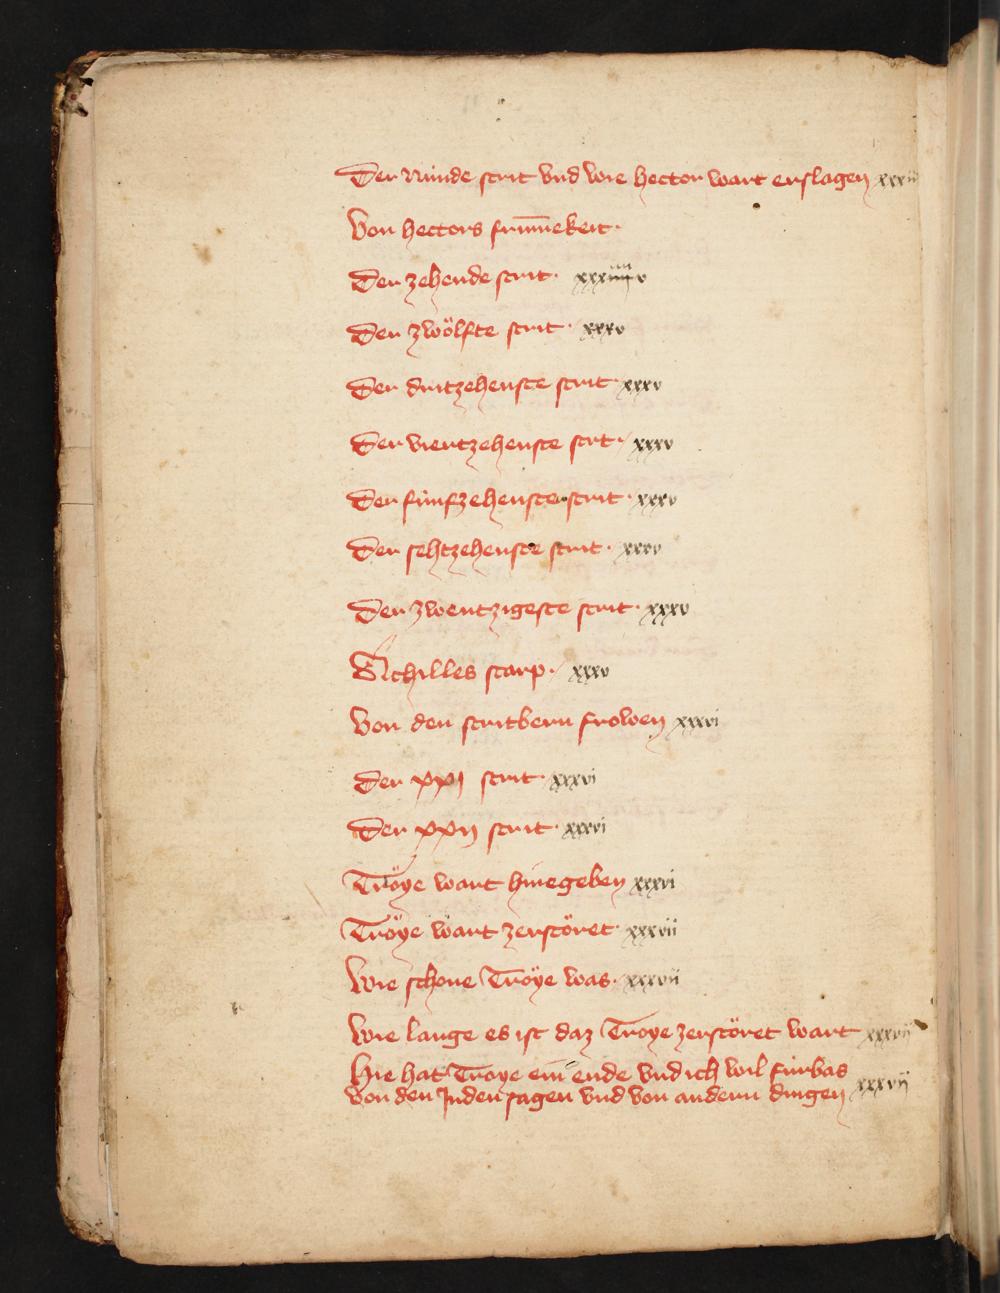 Der nünde strit vnd wie hector wart erslagen xxxii
Von hectors frumekeit·
Der zehende strit· xxxiiii v
Der zwölfte strit· xxxv
Der dritzehenste strit xxxv
Der viertzehenste strt· xxxv
Der fünfzehenste strit· xxxv
Der sehtzehenste strit· xxxv
Der zwentzigeste strit· xxxv
Achilles starp· xxxv
Von den stritbern frowen xxxvi
Der xxj strit· xxxvi
Der xxij strit· xxxvi
Tröye wart hinegeben xxxvi
Tröye wart zerstöret· xxxvii
Wie schone Tröye was· xxxvii
Wie lange es ist daz Troye zerstöret wart xxxvii
Hie hat Troye ein ende vnd ich wil fürbas
von den Juden sagen vnd von andern dingen xxxvij